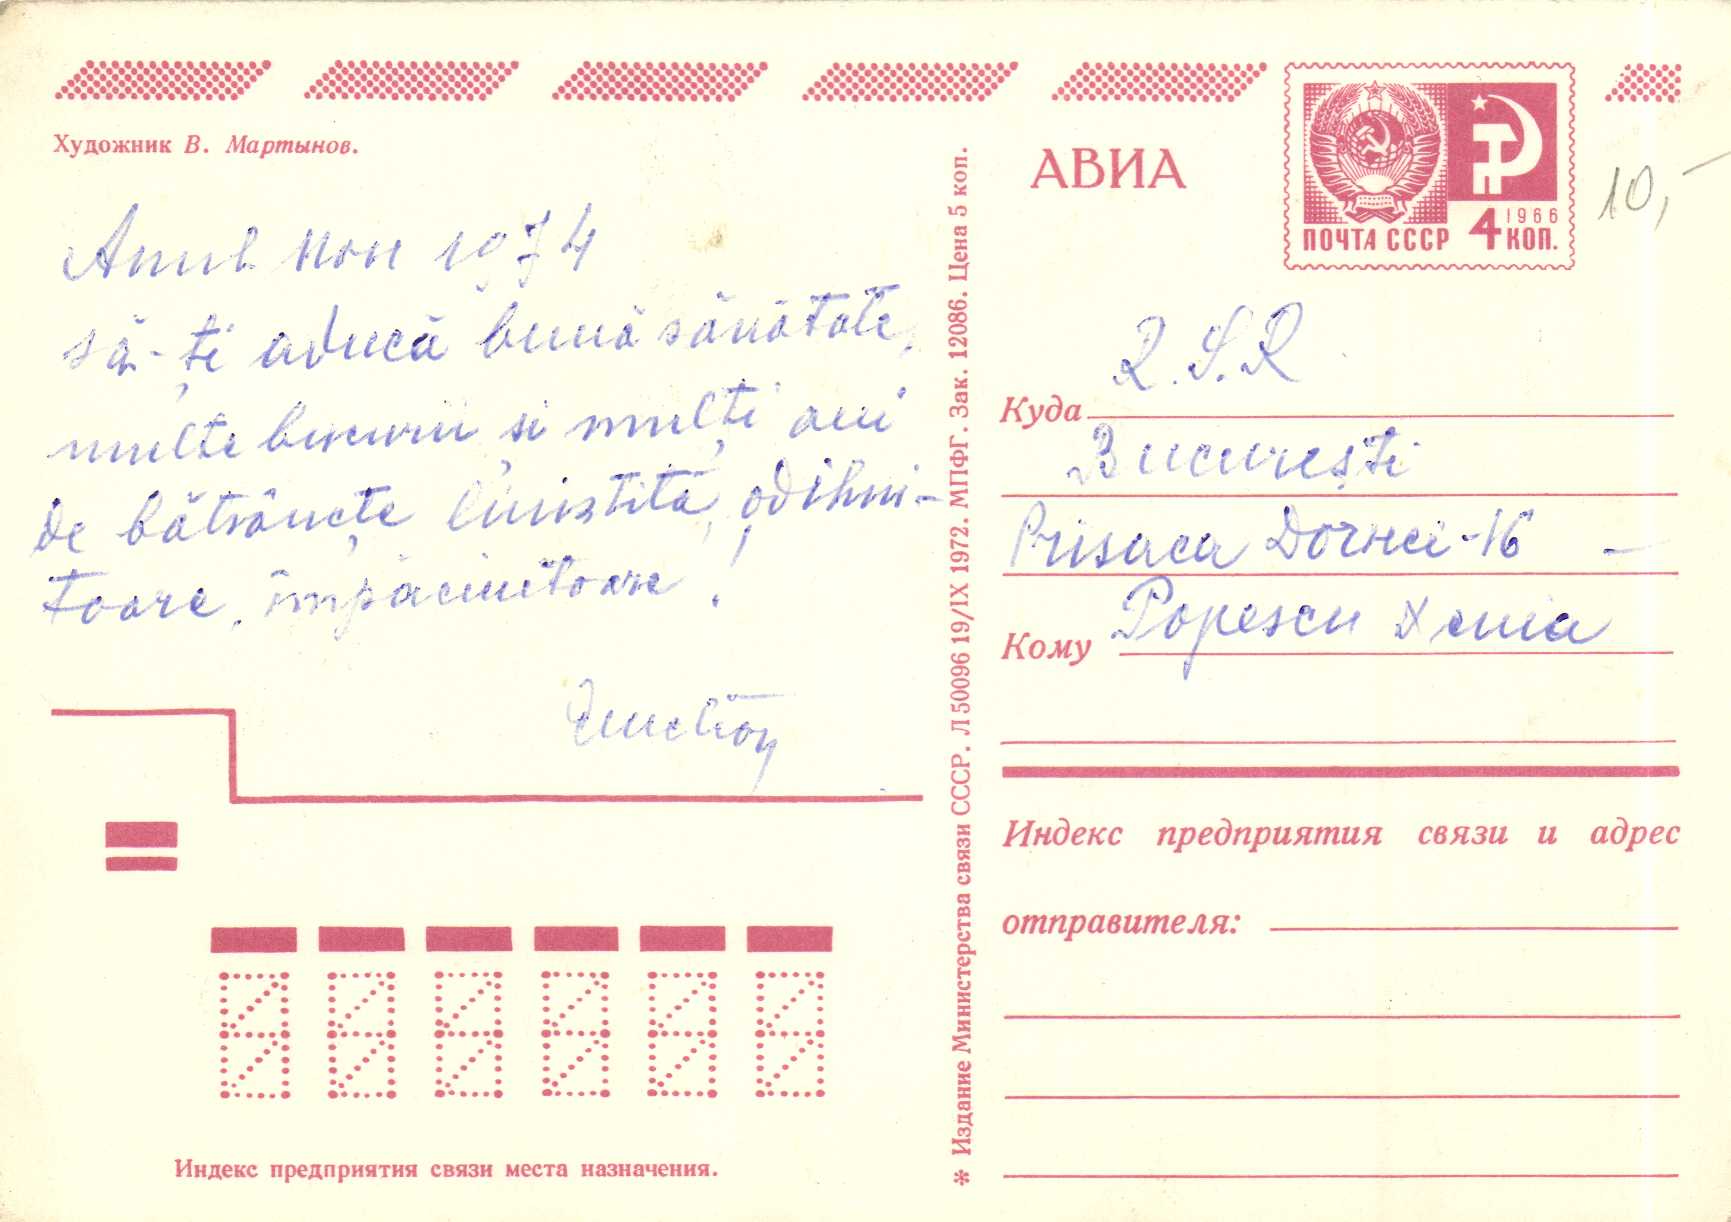 Художник В. Мартынов.
Anul nou 1974
să-ți aducă bună sănătate,
multe bucurii și mulți ani
de bătrânețe liniștită, odihni-
toare, împăciuitoare!
АВИА
1966
ПОЧТА СССР 4 КОП.
10,-
R.S.R
Куда
București
Prisaca Dornei-16 -
Кому Popescu Xenia
Индекс предприятия связи и адрес
отправителя:
* Издание Министерства связи СССР. Л 50096 19/IX 1972. МПФГ. Зак. 12086. Цена 5 коп.
Индекс предприятия связи места назначения.